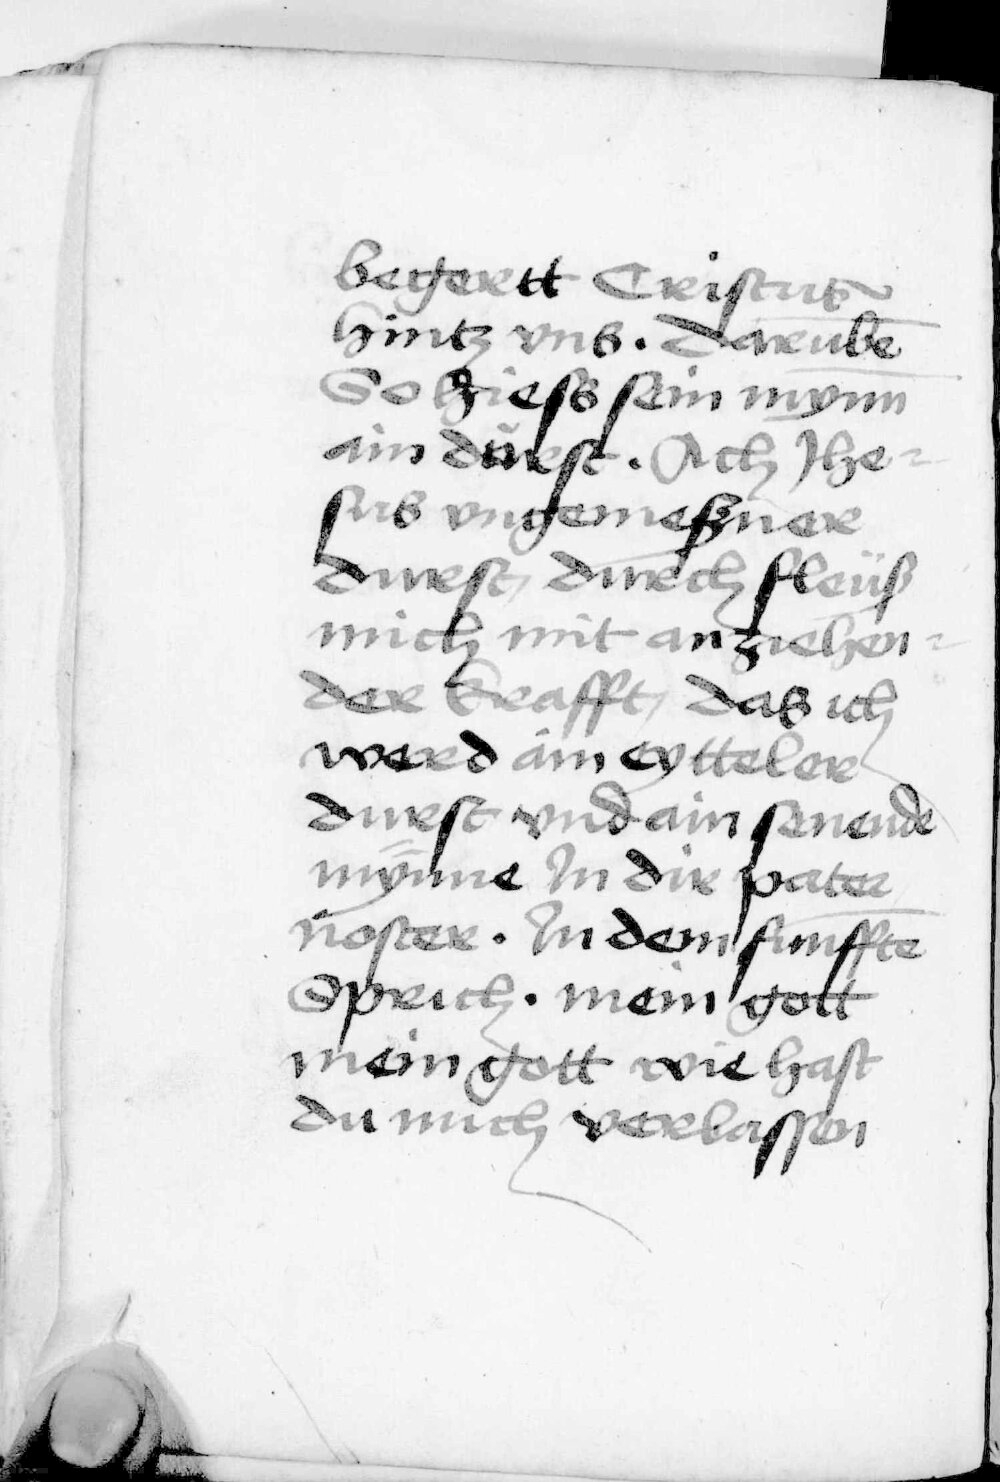 begertt Cristus
hintz vns. Darubē
So hiess sein mynn
ain dürst. Ach Jhe=
sus vngemeßner
durst, durch fleüß
mich mit anziehen=
der krafft, das ich
werd ain eytteler
durst vnd ain senende
mÿnne In dir pater
noster. In dem funffte
Sprich. mein gott
mein gott wie hast
du mich verlassen